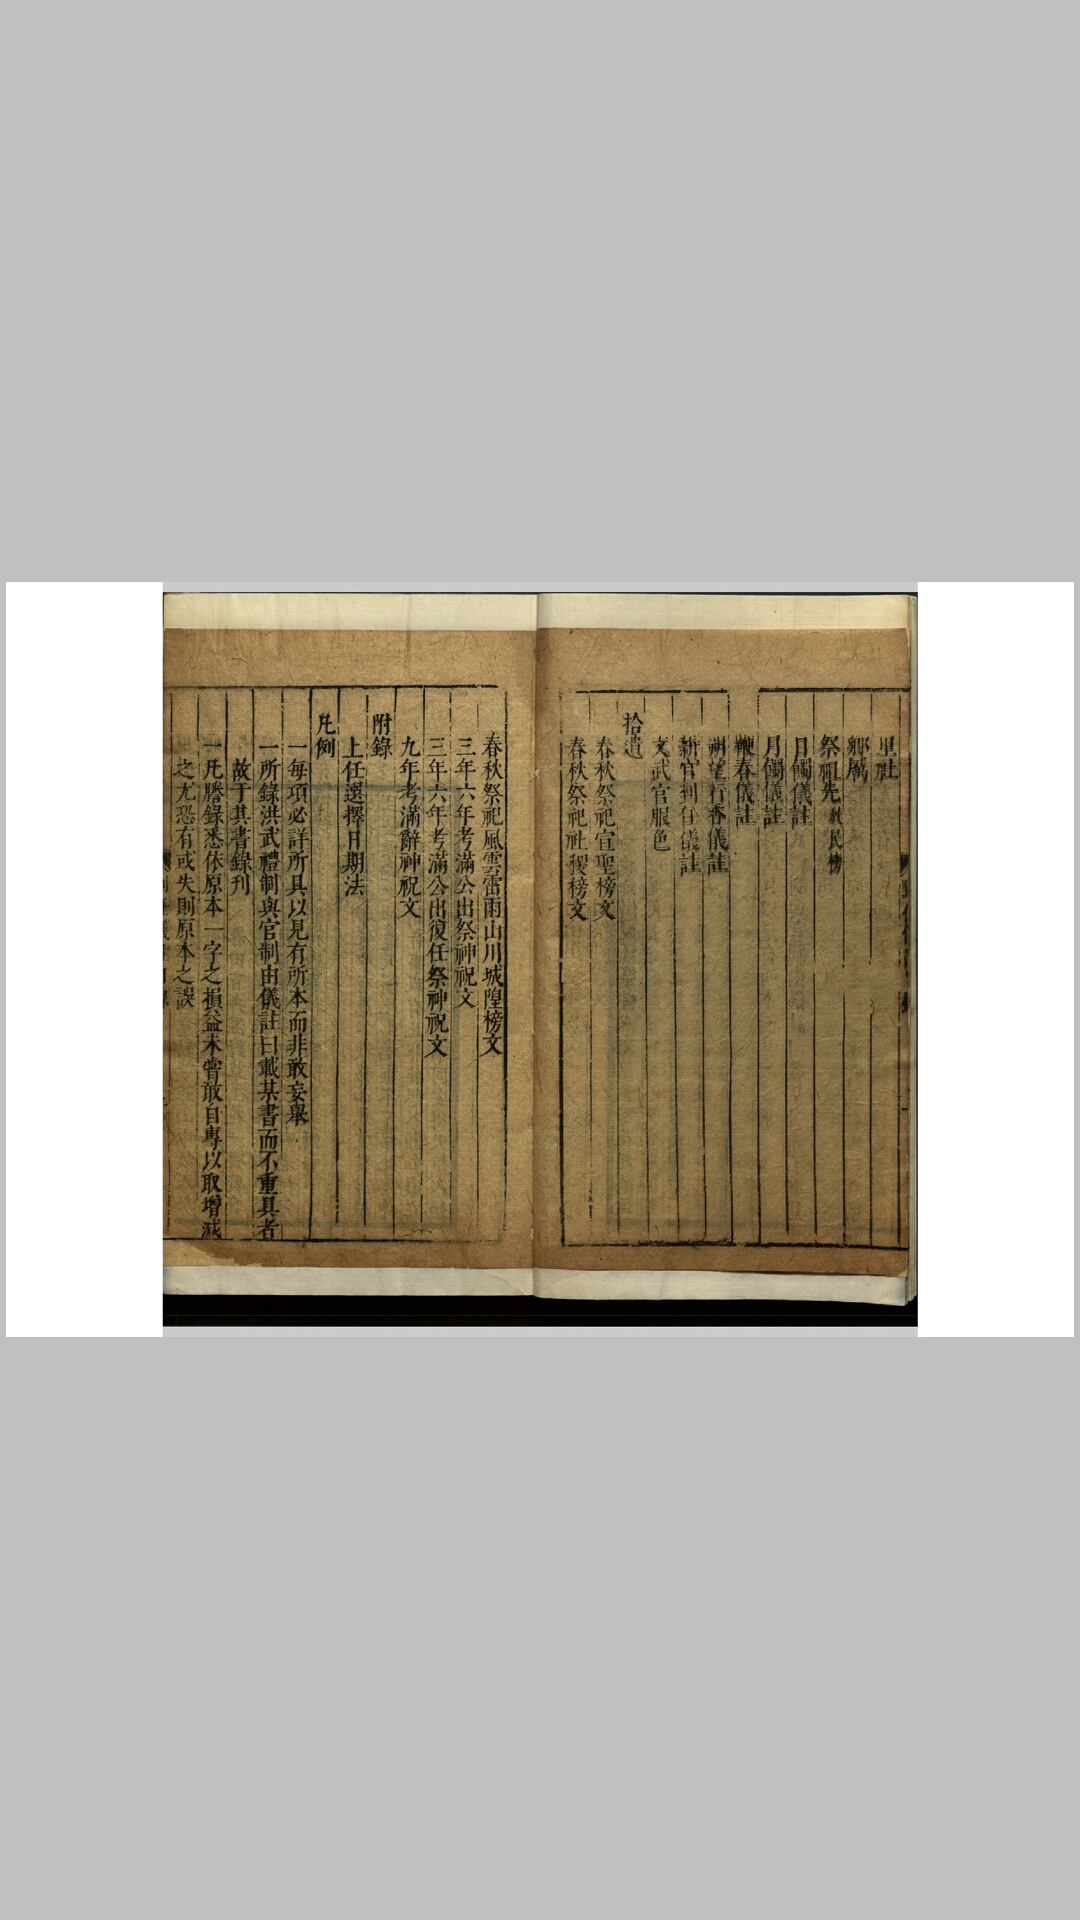 里社
鄉厲
祭祖先教民榜
日蝕儀註
月蝕儀註
鞭春儀註
朔望行香儀註
新官到任儀註
文武官服色
拾遺
春秋祭祀宣聖榜文
春秋祭祀社稷榜文
春秋祭祀風雲雷雨山川城隍榜文
三年六年考滿公出祭神祝文
三年六年考滿公出復任祭神祝文
九年考滿辭神祝文
附錄
上任選擇日期法
凡例
一每項必詳所具以見有所本而非敢妄舉
一所錄洪武禮制與官制由儀註曰載某書而不重具者
故于其書錄刊
一凡謄錄悉依原本一字之損益未嘗敢自專以取增減
之尤恐有或失則原本之誤